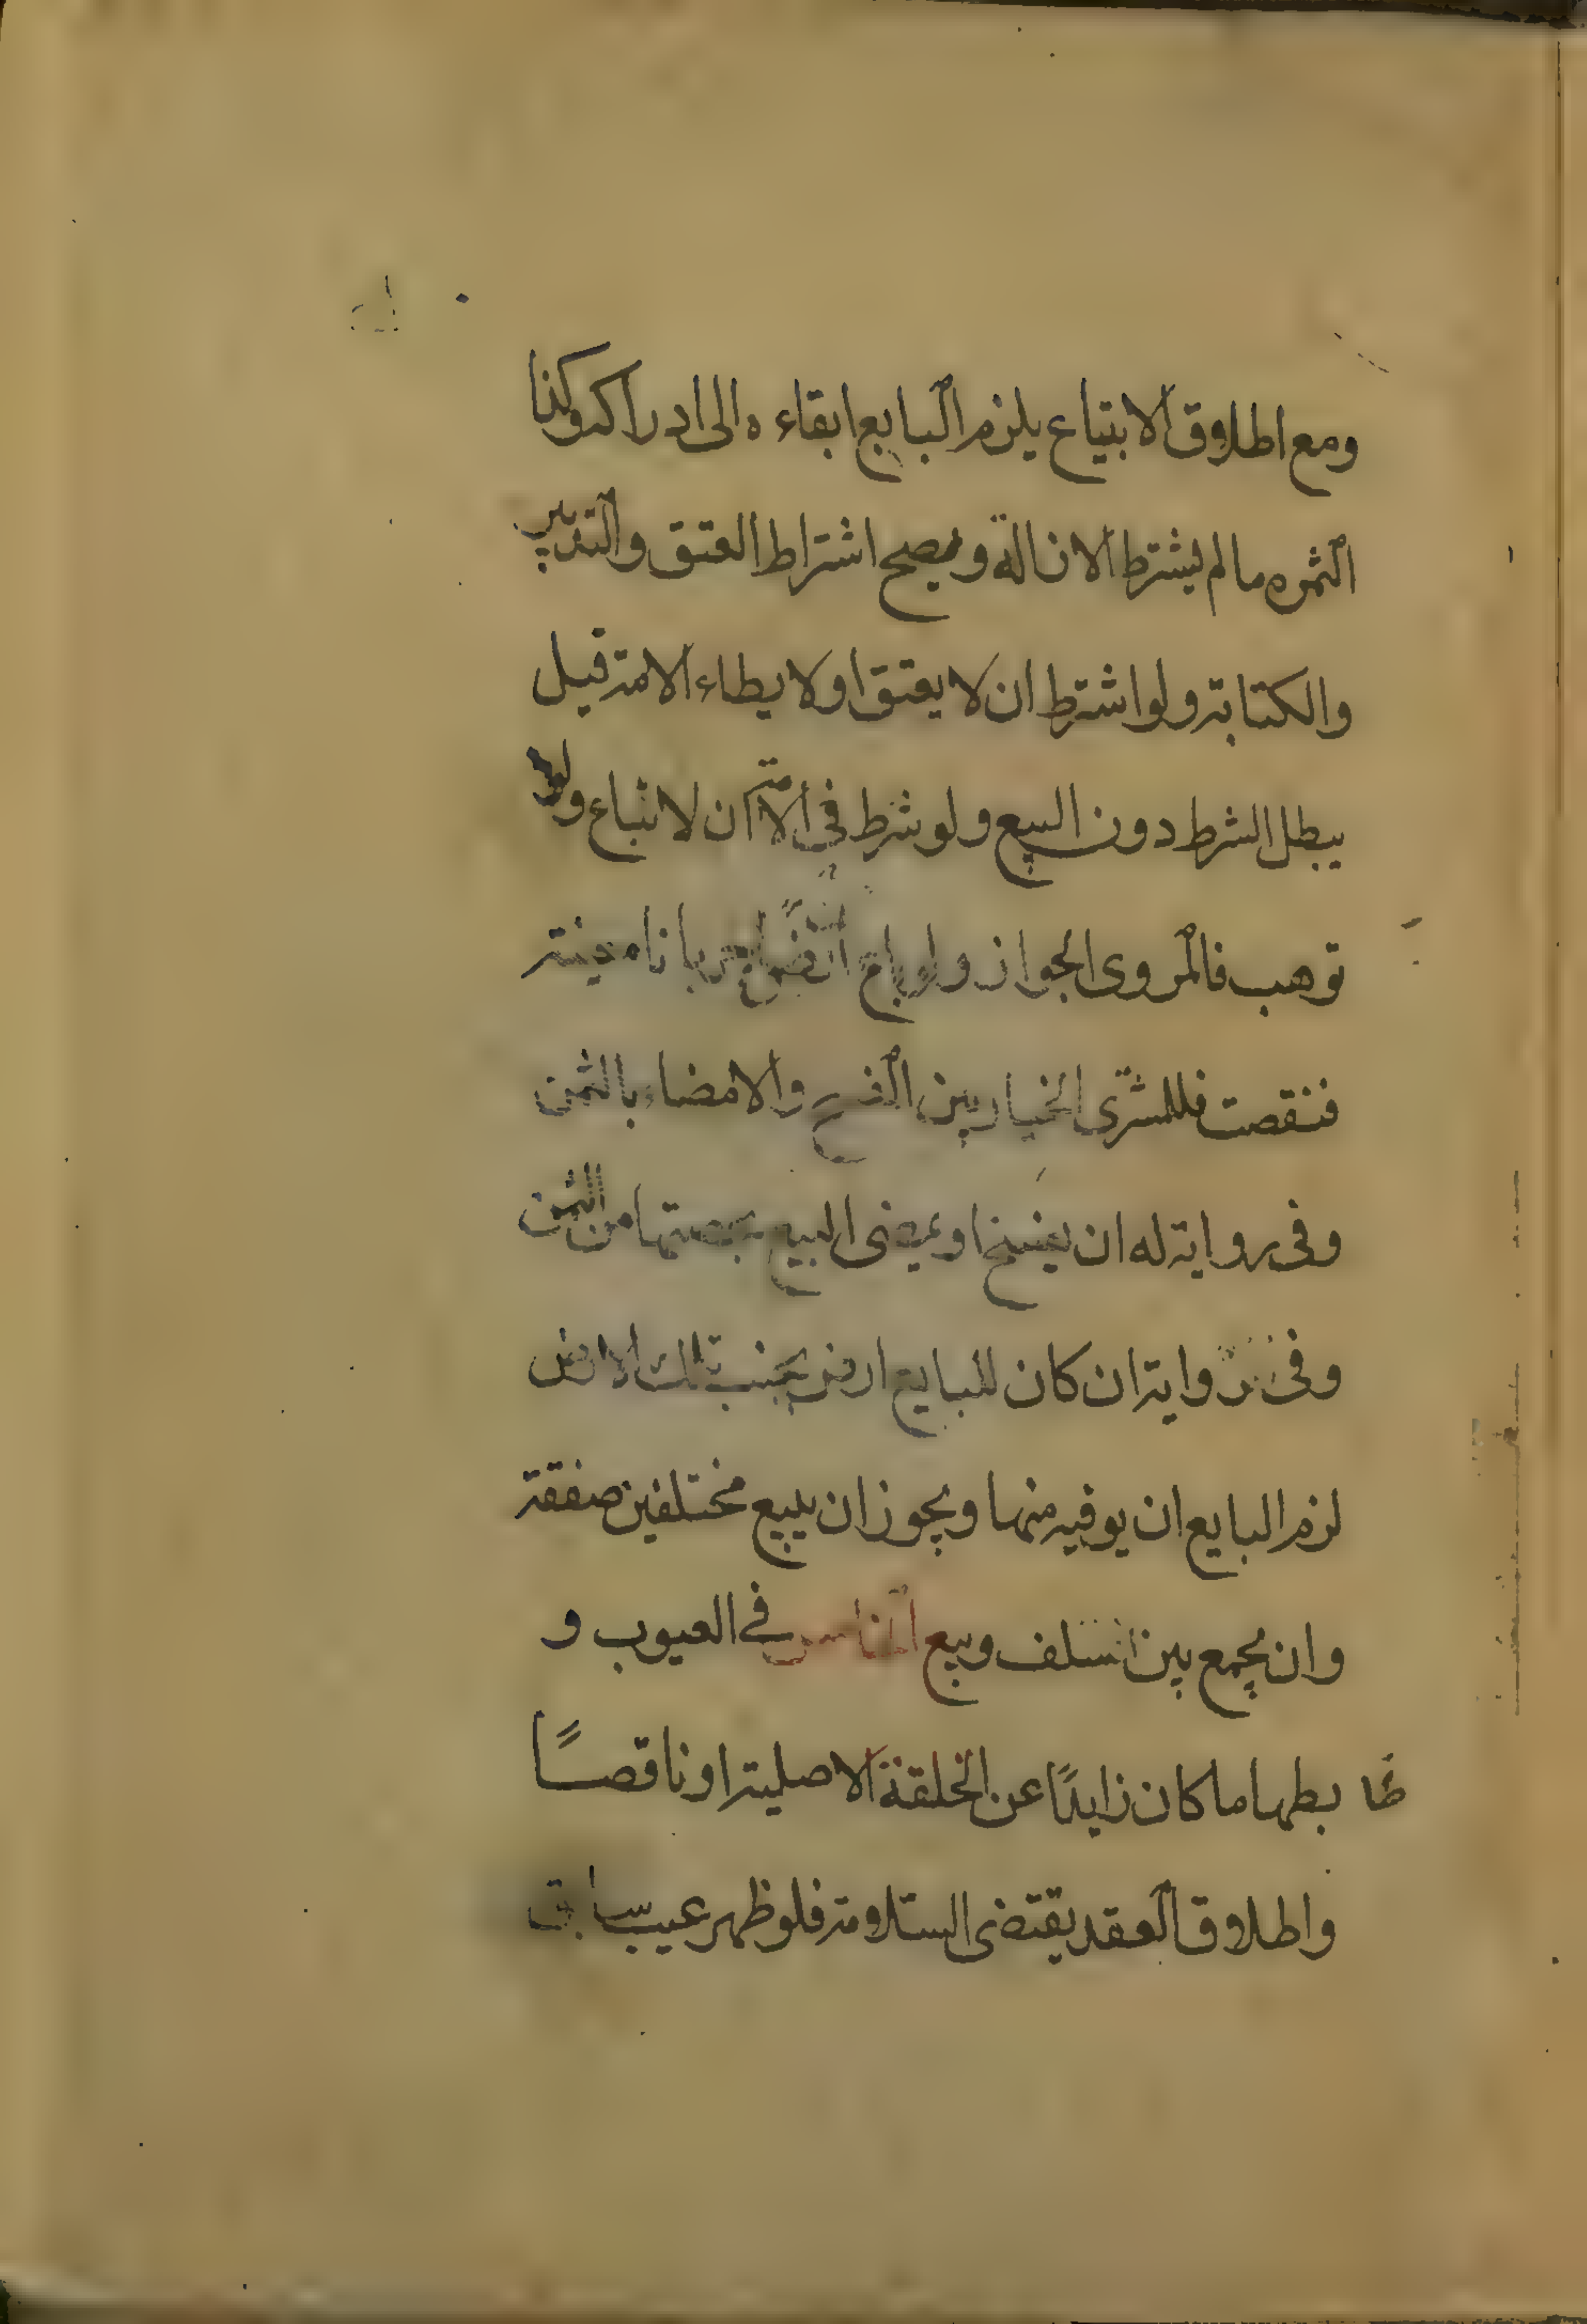 ومع اطلاق الابتياع يلزم البايع ابقاءه الى ادراكه وكذا
الثمره ما لم يشترط الازالة ويصح اشتراط العتق والتدبير
والكتابة ولو اشترط ان لا يعتق او لا يطاء الامة قيل
يبطل الشرط دون البيع ولو شرط في الامة ان لا تباع ولا
توهب فالمروى الجواز ولو باع ارضا جربانا معينة
فنقصت فللمشترى الخيار بين الفسخ والامضاء بالثمن
وفى رواية له ان يفسخ او يمضى البيع بحصتها من الثمن
وفى رواية ان كان للبايع ارض بجنب تلك الارض
لزم البايع ان يوفيه منها ويجوز ان يبيع مختلفين صفقة
وان يجمع بين سلف وبيع الخامس في العيوب و
ضا بطها ما كان زايدًا عن الخلقة الاصلية او ناقصًا
واطلاق العقد يقتضى السلامة فلو ظهر عيب سابق